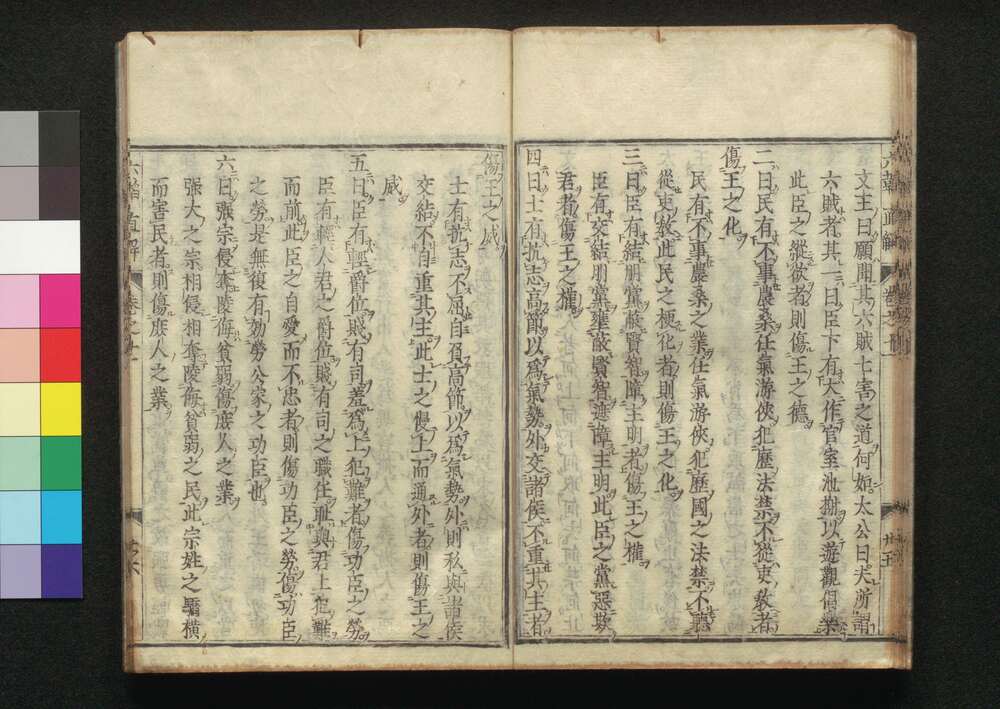 文王曰願聞其六賊七害之道何如太公曰夫所謂
六賊者其一曰臣下有大作宮室池榭以遊觀倡樂
此臣之縱欲者則傷王之德
二曰民有不事農桑任氣游俠犯歷法禁不從吏教者
傷王之化
民有不事農桑之業任氣游俠犯歷國之法禁不聽
從吏教此民之梗化者則傷王之化
三曰臣有結朋黨蔽賢智障主明者傷王之權
臣有交結朋黨壅蔽賢智遮障主明此臣之黨惡欺
君者傷王之權
四曰士有抗志高節以爲氣勢外交諸侯不重其主者
傷王之威
士有抗志不屈自負高節以爲氣勢外則私與諸侯
交結不自重其主此士之慢上而通外者則傷王之
威
五曰臣有輕爵位賤有司羞爲上犯難者傷功臣之勞
臣有輕人君之爵位賤有司之職任耻與君上犯難
而前此臣之自愛而不忠者則傷功臣之勞傷功臣
之勞是無復有効勞公家之功臣也
六曰强宗侵奪陵侮貧弱傷庶人之業
强大之宗相侵相奪陵侮貧弱之民此宗姓之驕橫
而害民者則傷庶人之業
六韜直解 卷之一